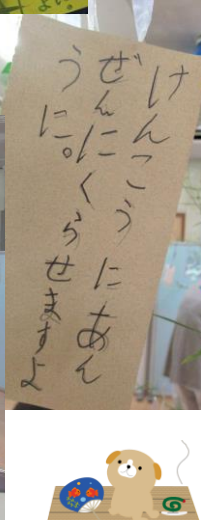 けんこうにあん
ぜんにくらせますよ
うに。